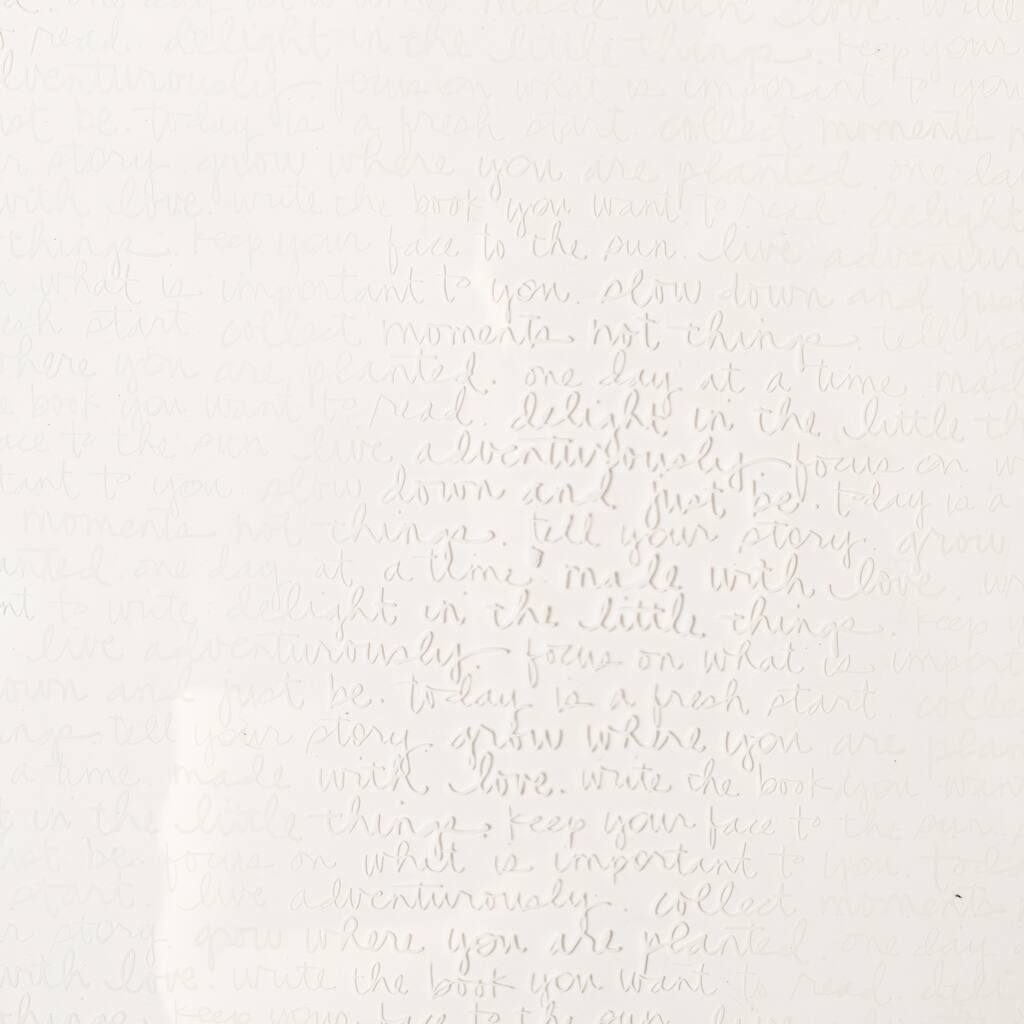 one day at a time. made with love. write
to read. delight in the little things. keep your
adventurously. focus on what is important to you
not be. today is a fresh start. collect moments
r story. grow where you are planted. one day
with love. write the book you want to read. delight
things. keep your face to the sun. live adventur
what is important to you. slow down and just
esh start. collect moments not things. tell yo
where you are planted. one day at a time. mad
e book you want to read. delight in the little th
ace to the sun. live adventurously. focus on w
tant to you. slow down and just be. today is a
moments not things. tell your story. grow
anted. one day at a time. made with love. wr
nt to write. delight in the little things. keep y
live adventurously. focus on what is import
own and just be. today is a fresh start. collec
ings. tell your story. grow where you are plan
a time. made with love. write the book you want
t in the little things. keep your face to the sun.
just be. focus on what is important to you. toda
start. live adventurously. collect moments
r story. grow where you are planted. one day
with love. write the book you want to read. deli
things. keep your face to the sun. live